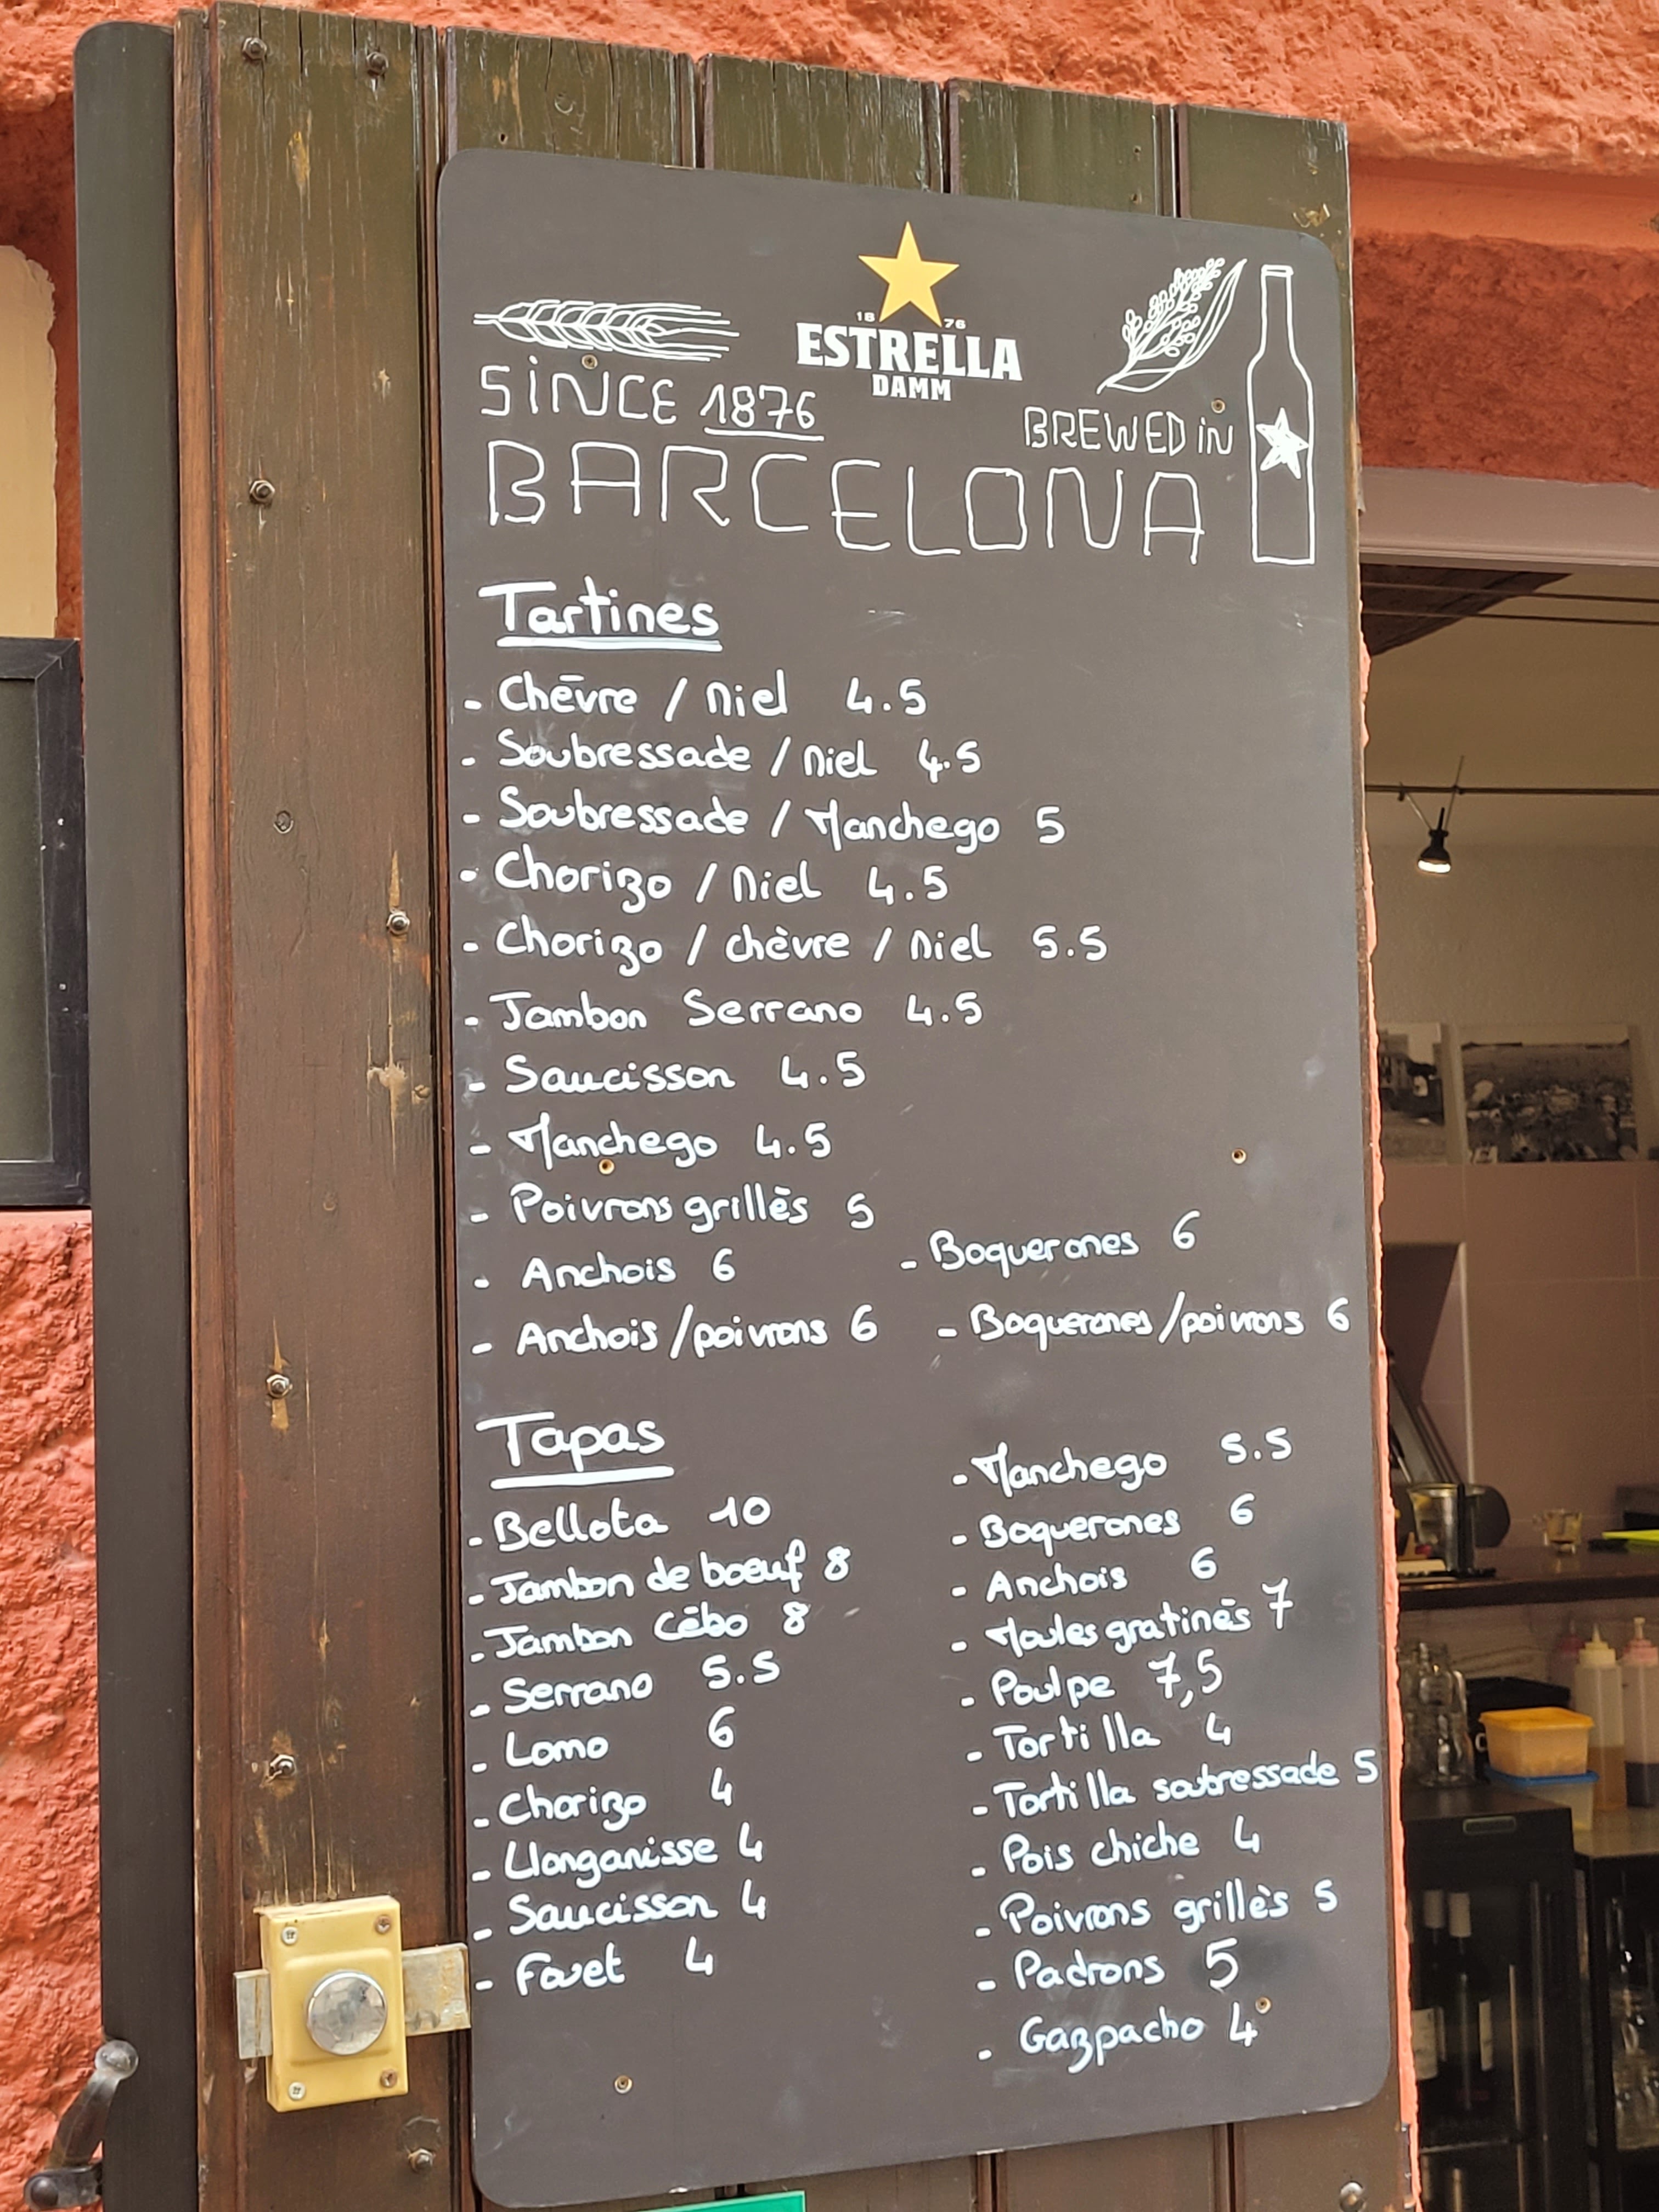 18 76
ESTRELLA
DAMM
SINCE 1876
BREWED IN
BARCELONA
Tartines
- Chèvre / Miel 4.5
- Soubressade / Miel 4.5
- Soubressade / Manchego 5
- Chorizo / Miel 4.5
- Chorizo / chèvre / Miel 5.5
- Jambon Serrano 4.5
- Saucisson 4.5
- Manchego 4.5
- Poivrons grillès 5
- Anchois 6
- Anchois / poivrons 6
- Boquerones 6
- Boquerones / poivrons 6
Tapas
- Bellota 10
- Jambon de boeuf 8
- Jambon Cēbo 8
- Serrano 5.5
- Lomo 6
- Chorizo 4
- Llonganisse 4
- Saucisson 4
- Fouet 4
- Manchego 5.5
- Boquerones 6
- Anchois 6
- Moules gratinēs 7
- Poulpe 7,5
- Tortilla 4
- Tortilla soubressade 5
- Pois chiche 4
- Poivrons grillès 5
- Padrons 5
- Gazpacho 4